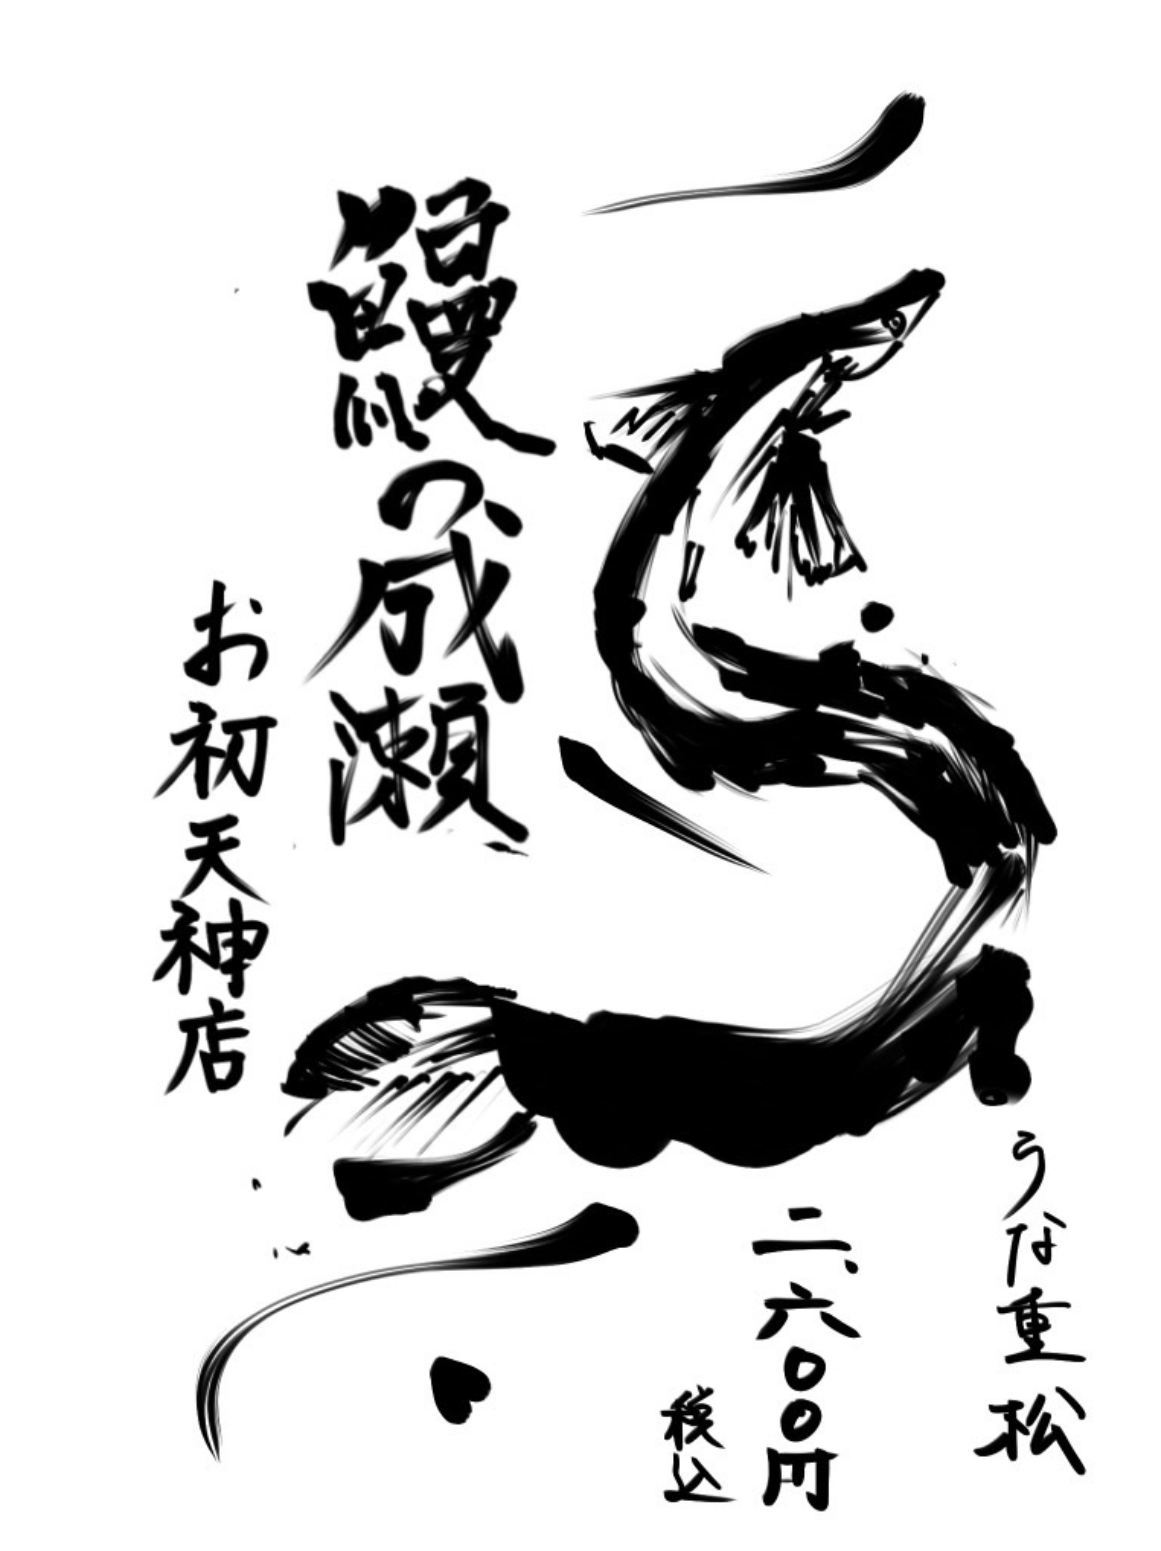 うな重 松
二、六〇〇円
税込
鰻の成瀬
お初天神店